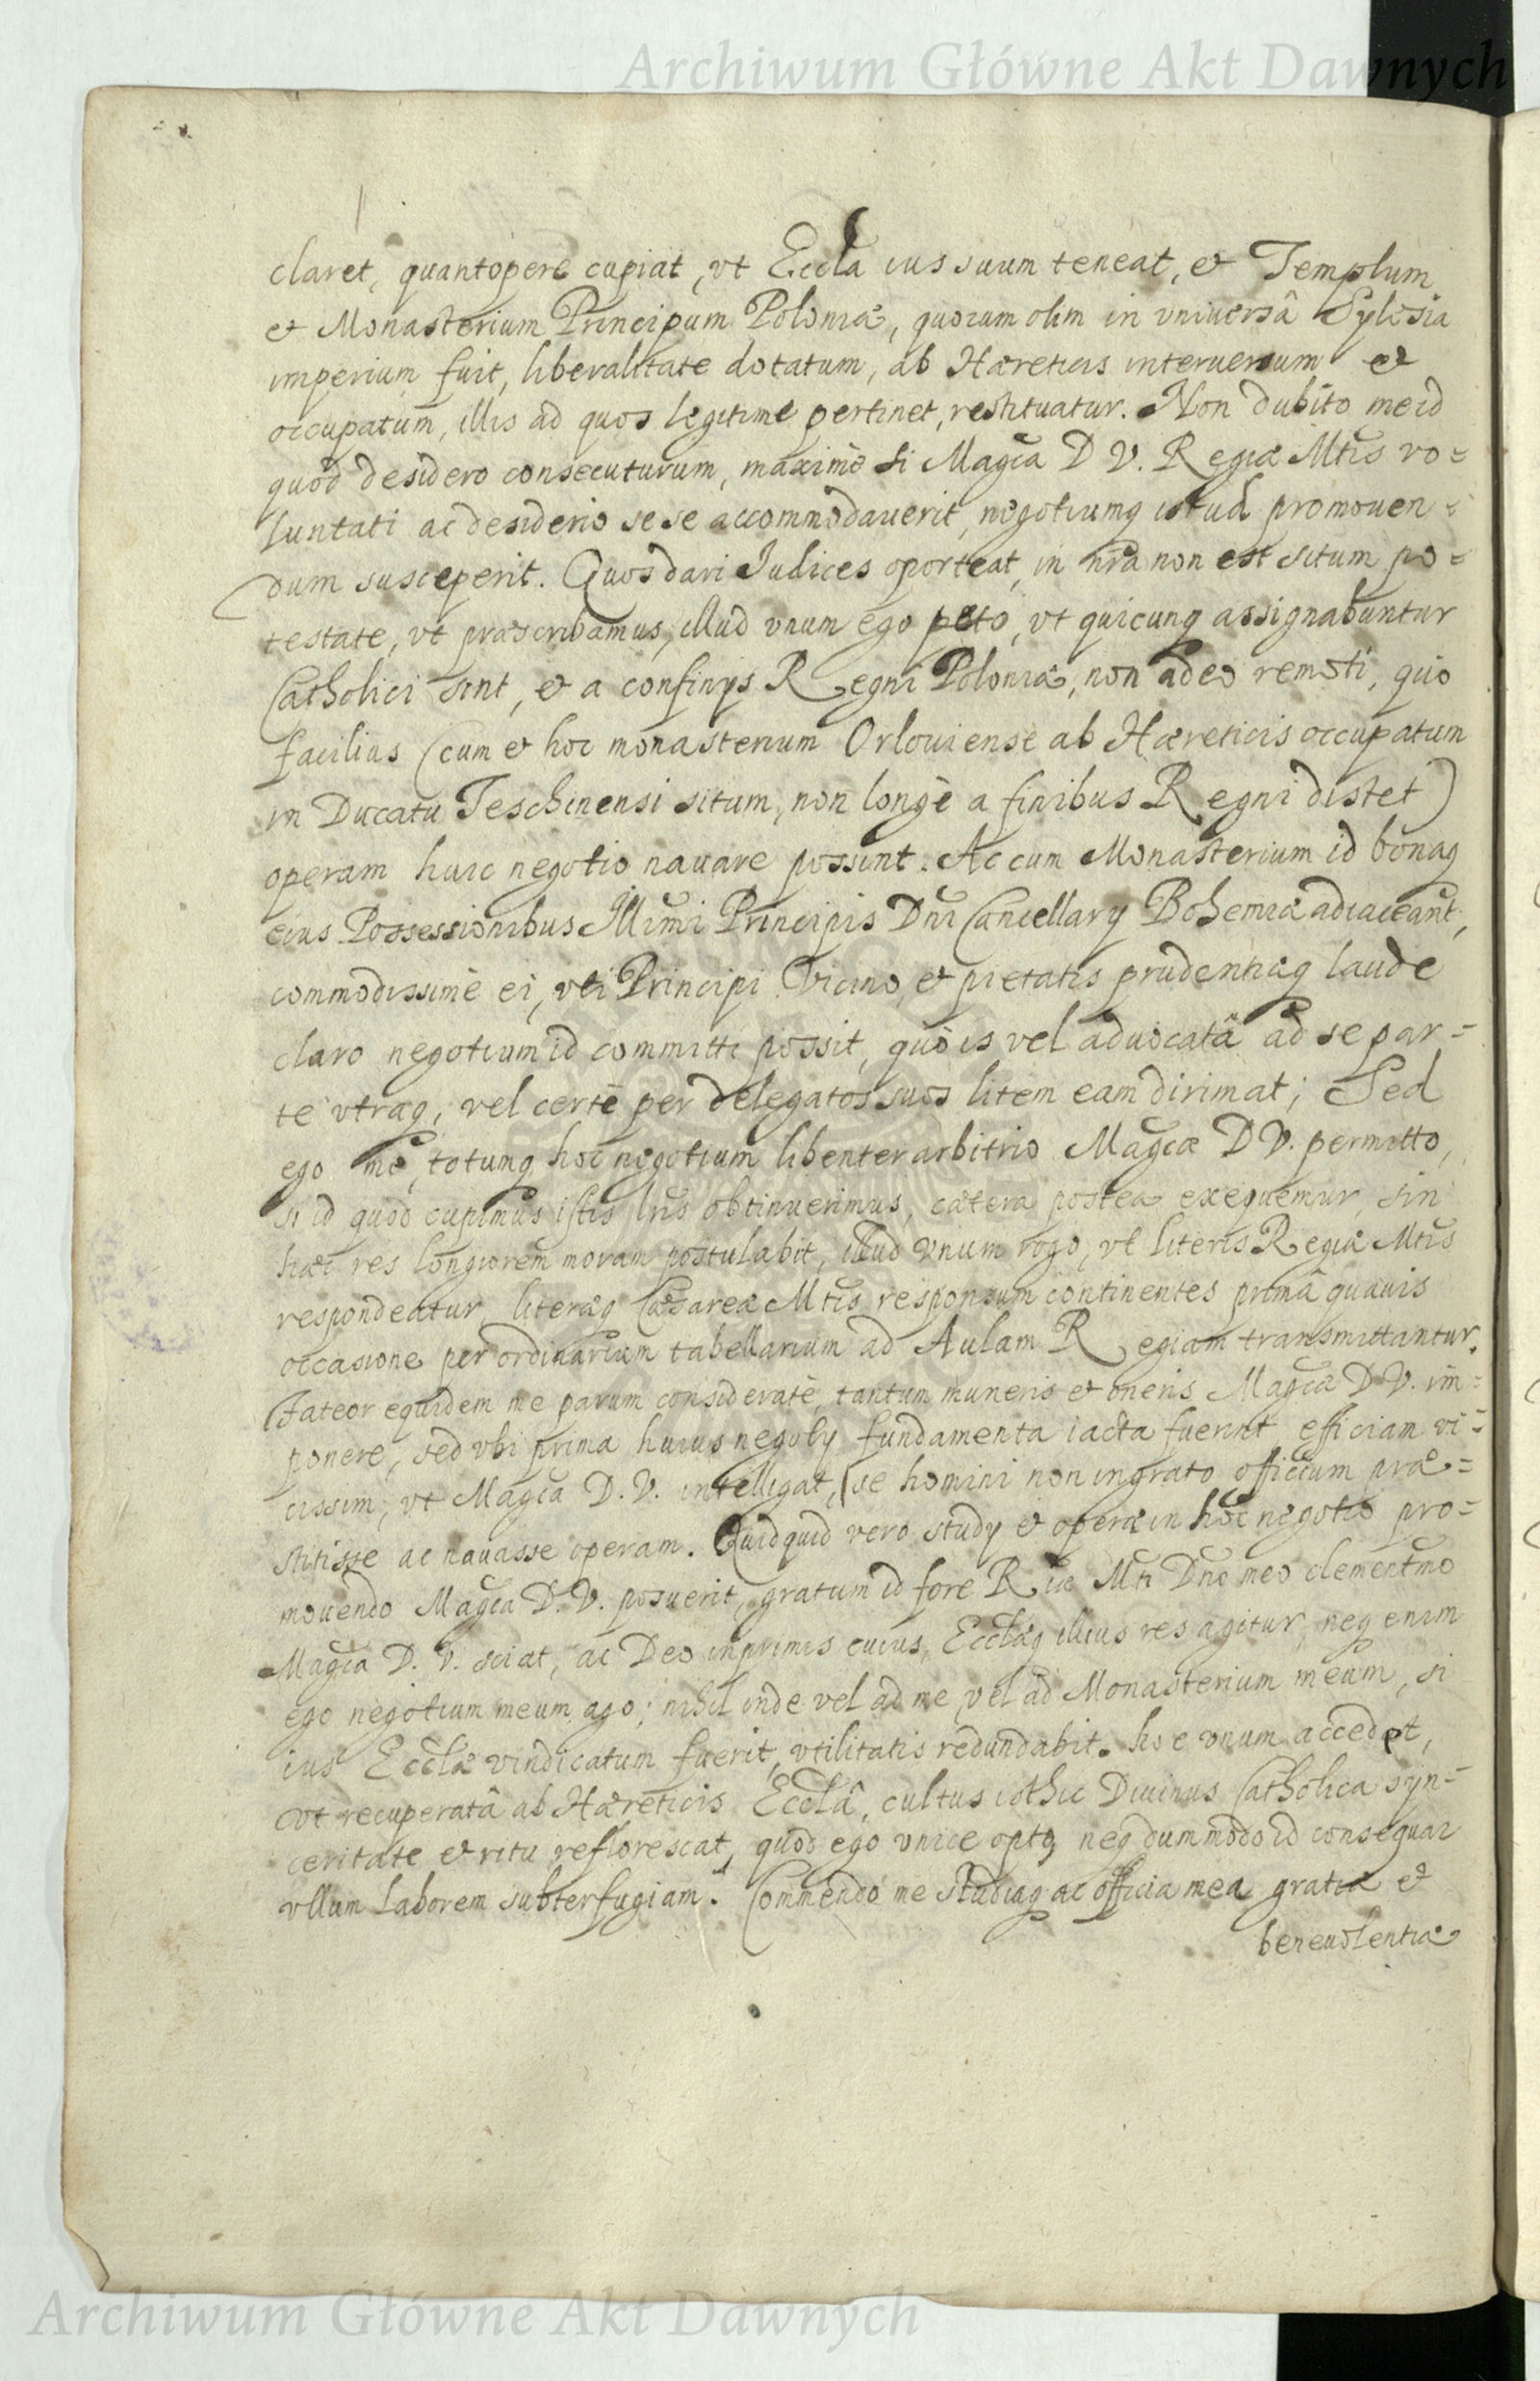 Archiwum Główne Akt Dawnych
claret, quantopere cupiat, vt Eccl̃a ius suum teneat, et Templum
et Monasterium Principum Poloniæ, quorum olim in vniuersâ Sylesia
imperium fuit, liberalitate dotatum, ab Hæreticis interuersum et
occupatum, illis ad quos legitime pertinet, restituatur. Non dubito me id
quod desidero consecuturum, maximè si Magc̃a D V. Regiæ Mtis vo=
luntati ac desiderio sese accommodauerit, negotiumq istud promouen=
dum susceperit. Quos dari Iudices oporteat, in nr̃a non est situm po=
testate, vt præscribamus, illud vnum ego peto, vt quicunq assignabuntur
Catholici sint, et a confinijs Regni Poloniæ, non adeo remoti, quo
facilius (cum et hoc monasterium Orlouiense ab Hæreticis occupatum
in Ducatu Teschinensi situm, non longè a finibus Regni distet)
operam huic negotio nauare possint. Ac cum Monasterium id bonaq
eius Possessionibus Illmi Principis Dni Cancellarij Bohemiæ adiaceant,
commodissimè ei, vti Principi Vicino, et pietatis prudentiæq laude
claro negotium id committi possit, quò is vel aduocatâ ad se par=
te vtraq, vel certè per delegatos suos litem eam dirimat; Sed
ego me, totumq hoc negotium libenter arbitrio Magcæ D V. permitto,
si id quod cupimus istis lris obtinuerimus, cætera postea exequemur, sin
hæc res longiorem moram postulabit, illud vnum rogo, vt literis Regiæ Mtis
respondeatur, literæq Cæsareæ Mtis responsum continentes primâ quauis
occasione per ordinarium tabellarium ad Aulam Regiam transmittantur.
Fateor equidem me parum consideratè, tantum muneris et oneris Magcæ D V. im=
ponere, sed vbi prima huius negotij fundamenta iacta fuerint, efficiam vi=
cissim, vt Magca D. V. intelligat, se homini non ingrato officium præ=
stitisse ac nauasse operam. Quidquid vero studij et operæ in hoc negotio pro=
mouendo Magca D. V. posuerit, gratum id fore R iæ Mti Dno meo clementmo
Magca D. V. sciat, ac Deo inprimis cuius, Ecclæq illius res agitur, neq enim
ego negotium meum ago; nihil inde vel ad me, vel ad Monasterium meum, si
ius Ecclæ vindicatum fuerit, vtilitatis redundabit. hoc vnum accedet,
vt recuperatâ ab Hæreticis Ecclâ, cultus isthic Diuinus Catholica syn=
ceritate et ritu reflorescat, quod ego vnice opto, neq dummodo id consequar
vllum laborem subterfugiam. Commendo me studiaq ac officia mea gratiæ et
beneuolentiæ
Archiwum Główne Akt Dawnych